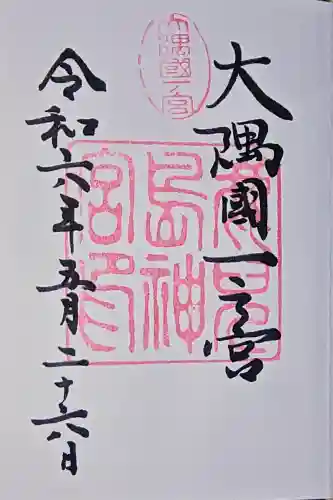 大隅國一宮
大隅國一之宮
鹿兒
島神
宮印
令和六年五月二十六日